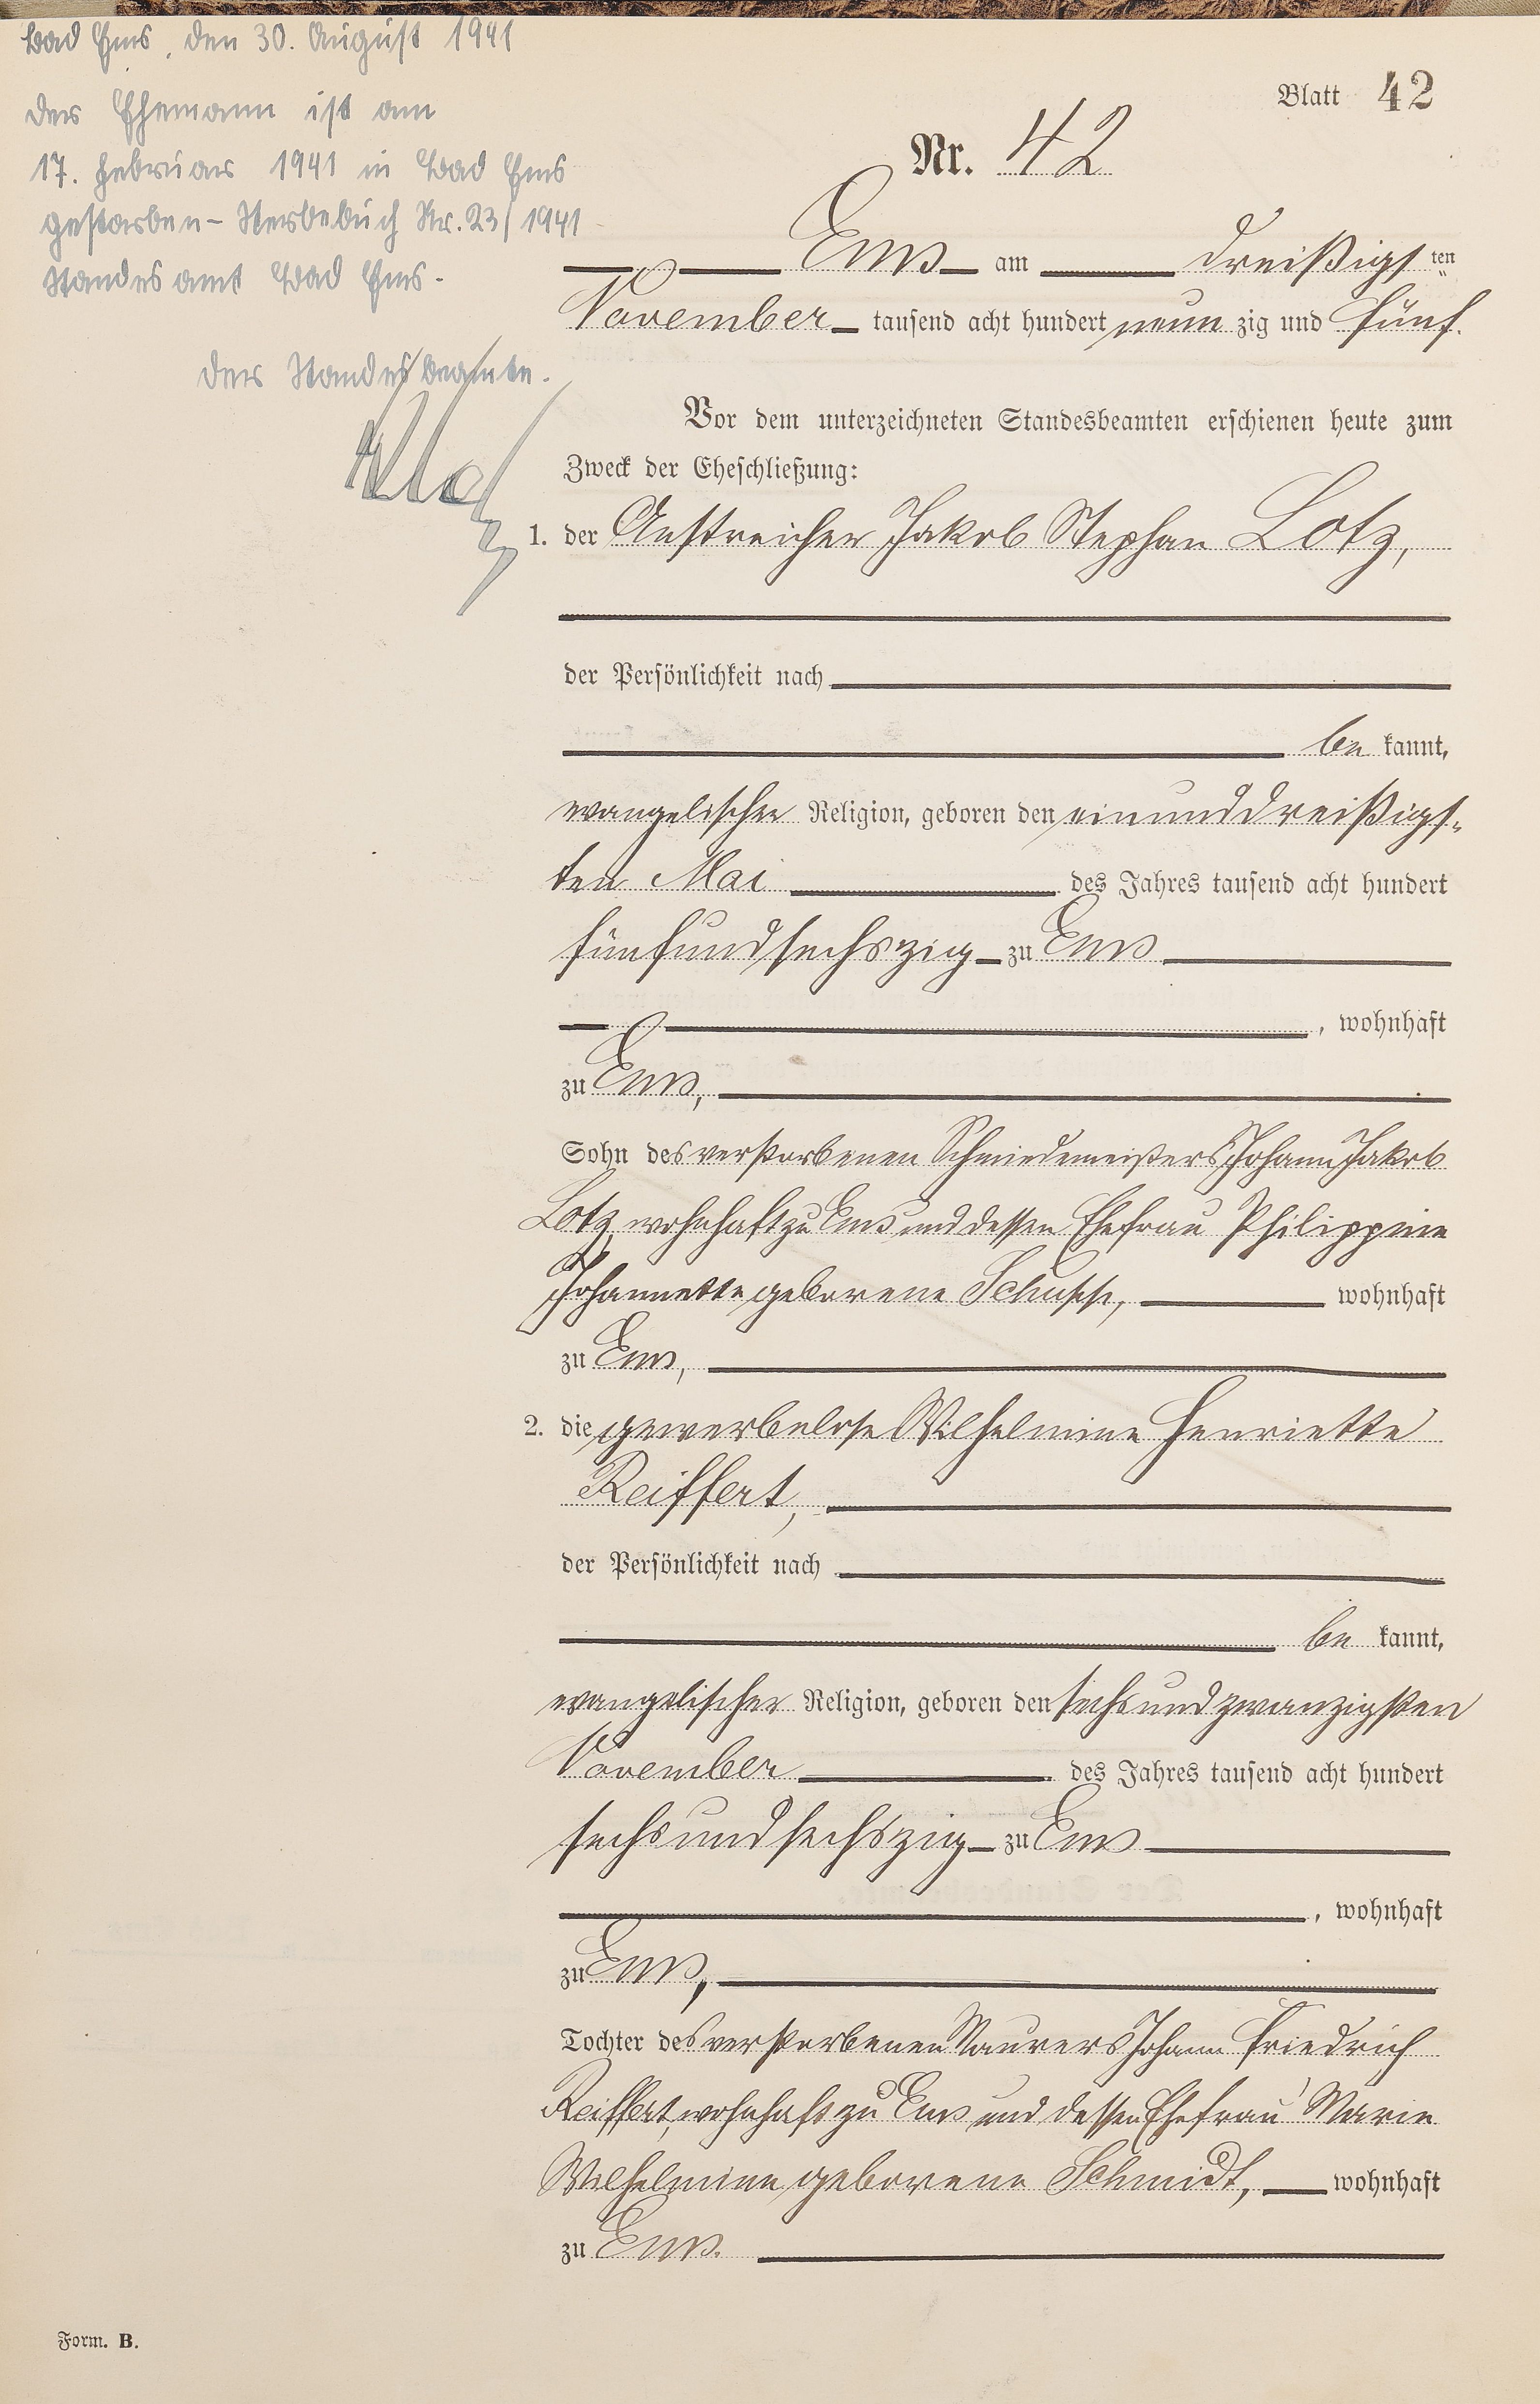 Bad Ems, den 30. August 1941
Der Ehemann ist am
17. Februar 1941 in Bad Ems
gestorben - Sterbebuch Nr. 23/1941
Standesamt Bad Ems.
Der Standesbeamte.
Blatt 42
Nr. 42
Ems am dreißigsten
November tausend acht hundert neunzig und fünf.
Vor dem unterzeichneten Standesbeamten erschienen heute zum
Zweck der Eheschließung:
1. der Anstreicher Jakob Stephan Lotz,
der Persönlichkeit nach
bekannt,
evangelischer Religion, geboren den einunddreißigs-
ten Mai des Jahres tausend acht hundert
fünfundsechszig zu Ems
, wohnhaft
zu Ems,
Sohn des verstorbenen Schmiedemeisters Johann Jakob
Lotz, wohnhaft zu Ems und dessen Ehefrau Philippine
Johannette geborene wohnhaft
zu Ems,
2. die gewerbelose Wilhelmine Henriette
Reiffert,
der Persönlichkeit nach
bekannt,
evangelischer Religion, geboren den sechsundzwanzigsten
November des Jahres tausend acht hundert
sechsundsechszig zu Ems
, wohnhaft
zu Ems,
Tochter des verstorbenen Maurers Johann Friedrich
Reiffert, wohnhaft zu Ems und dessen Ehefrau Marie
Wilhelmine geborene Schmidt, wohnhaft
zu Ems.
Form. B.